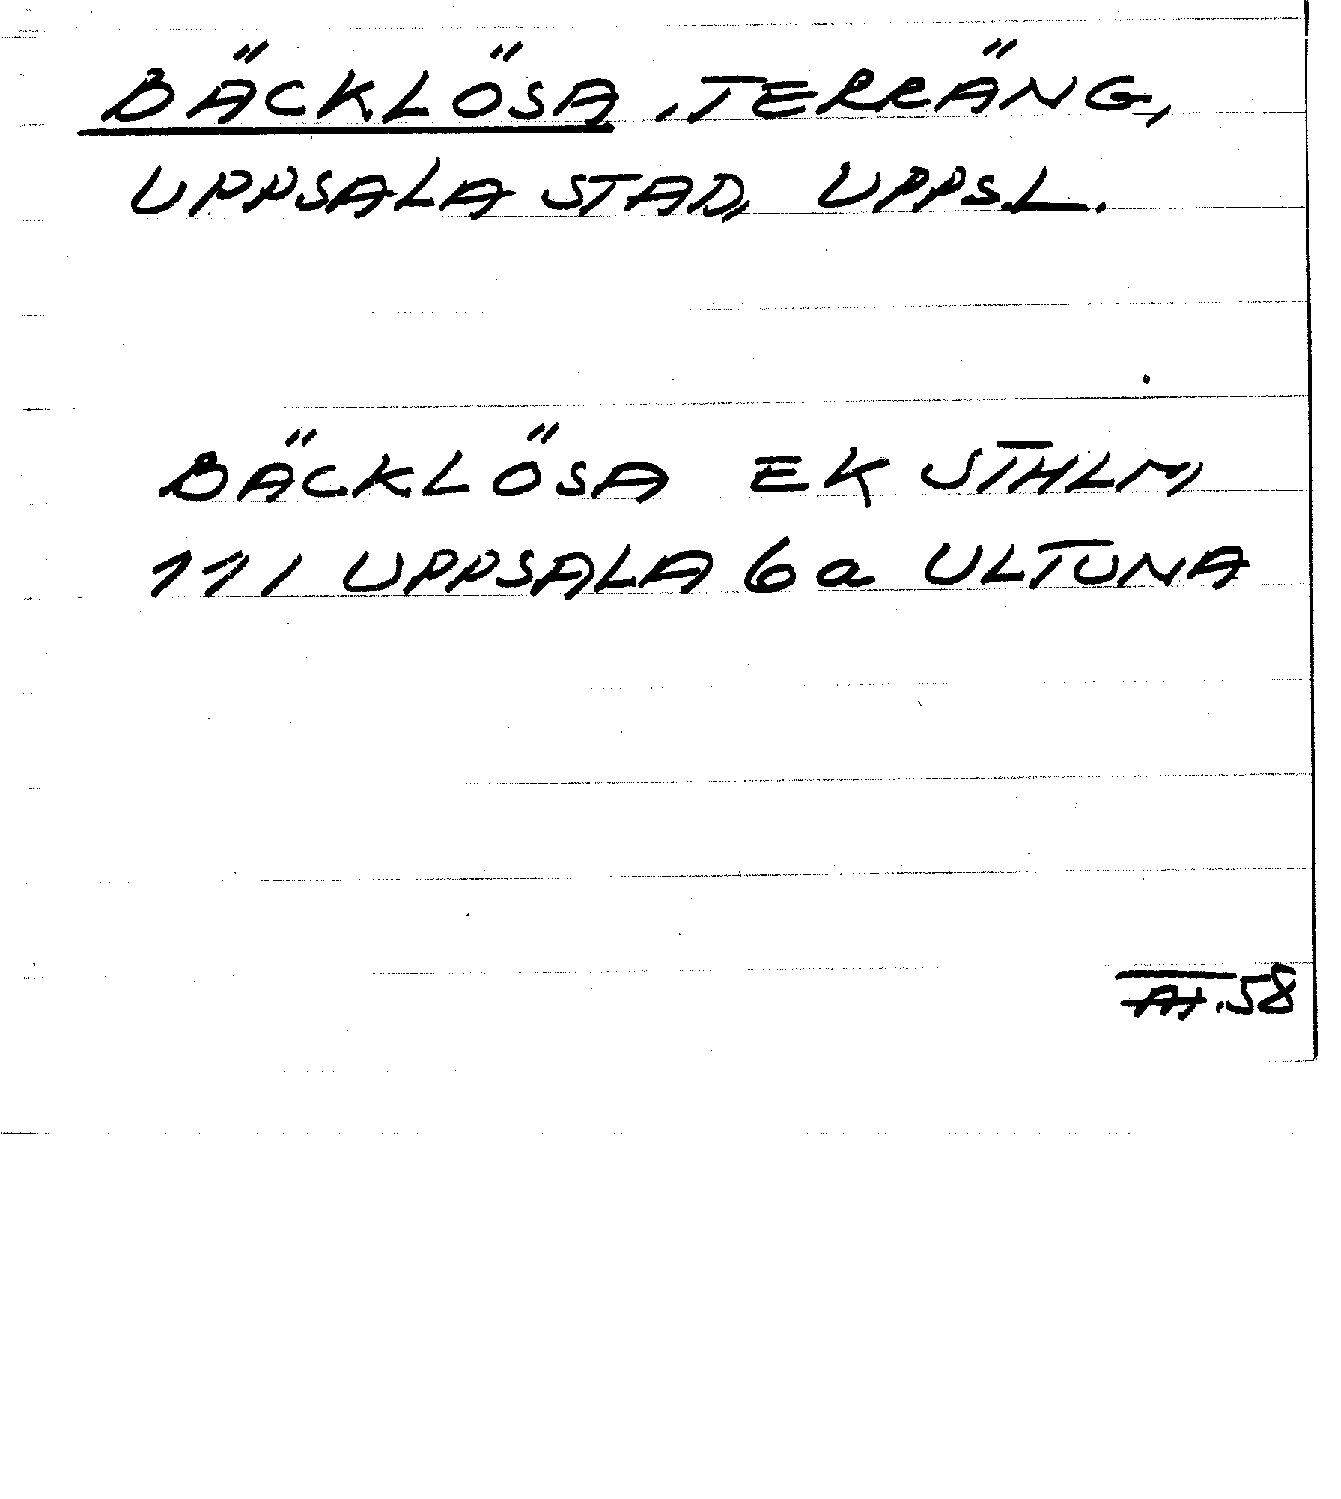 BÄCKLÖSA, TERRÄNG,
UPPSALA STAD, UPPS.L.
BÄCKLÖSA EK STHLM
111 UPPSALA 6a ULTUNA
.58